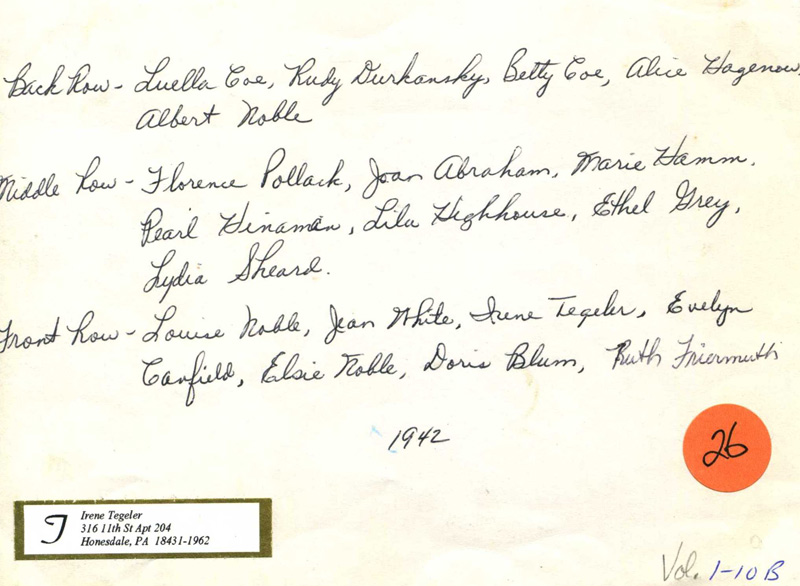 Back Row - Luella Coe, Rudy Durkansky, Betty Coe, Alice Hagenow,
Albert Noble
Middle Row - Florence Pollack, Joan Abraham, Marie Hamm,
Pearl Hinaman, Lila Highhouse, Ethel Grey,
Lydia Sheard.
Front Row - Louise Noble, Jean White, Irene Tegeler, Evelyn
Canfield, Elsie Noble, Doris Blum, Ruth Friermuth
1942
26
T
Irene Tegeler
316 11th St Apt 204
Honesdale, PA 18431-1962
Vol. 1-10 B